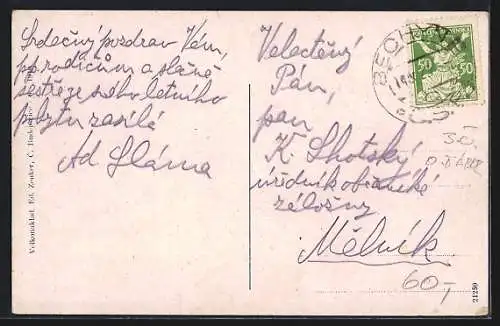 Srdečný pozdrav Vám,
pp rodičům a slečně
sestře ze svého letního
pobytu zasílá
Ad Sláma
Velectěný
Pán,
pan
K Lhotský
úředník občanské
záložny
Mělník
60,-
50
50
BECHY
Velkonaklad. Ed. Zenker, Č.
21250